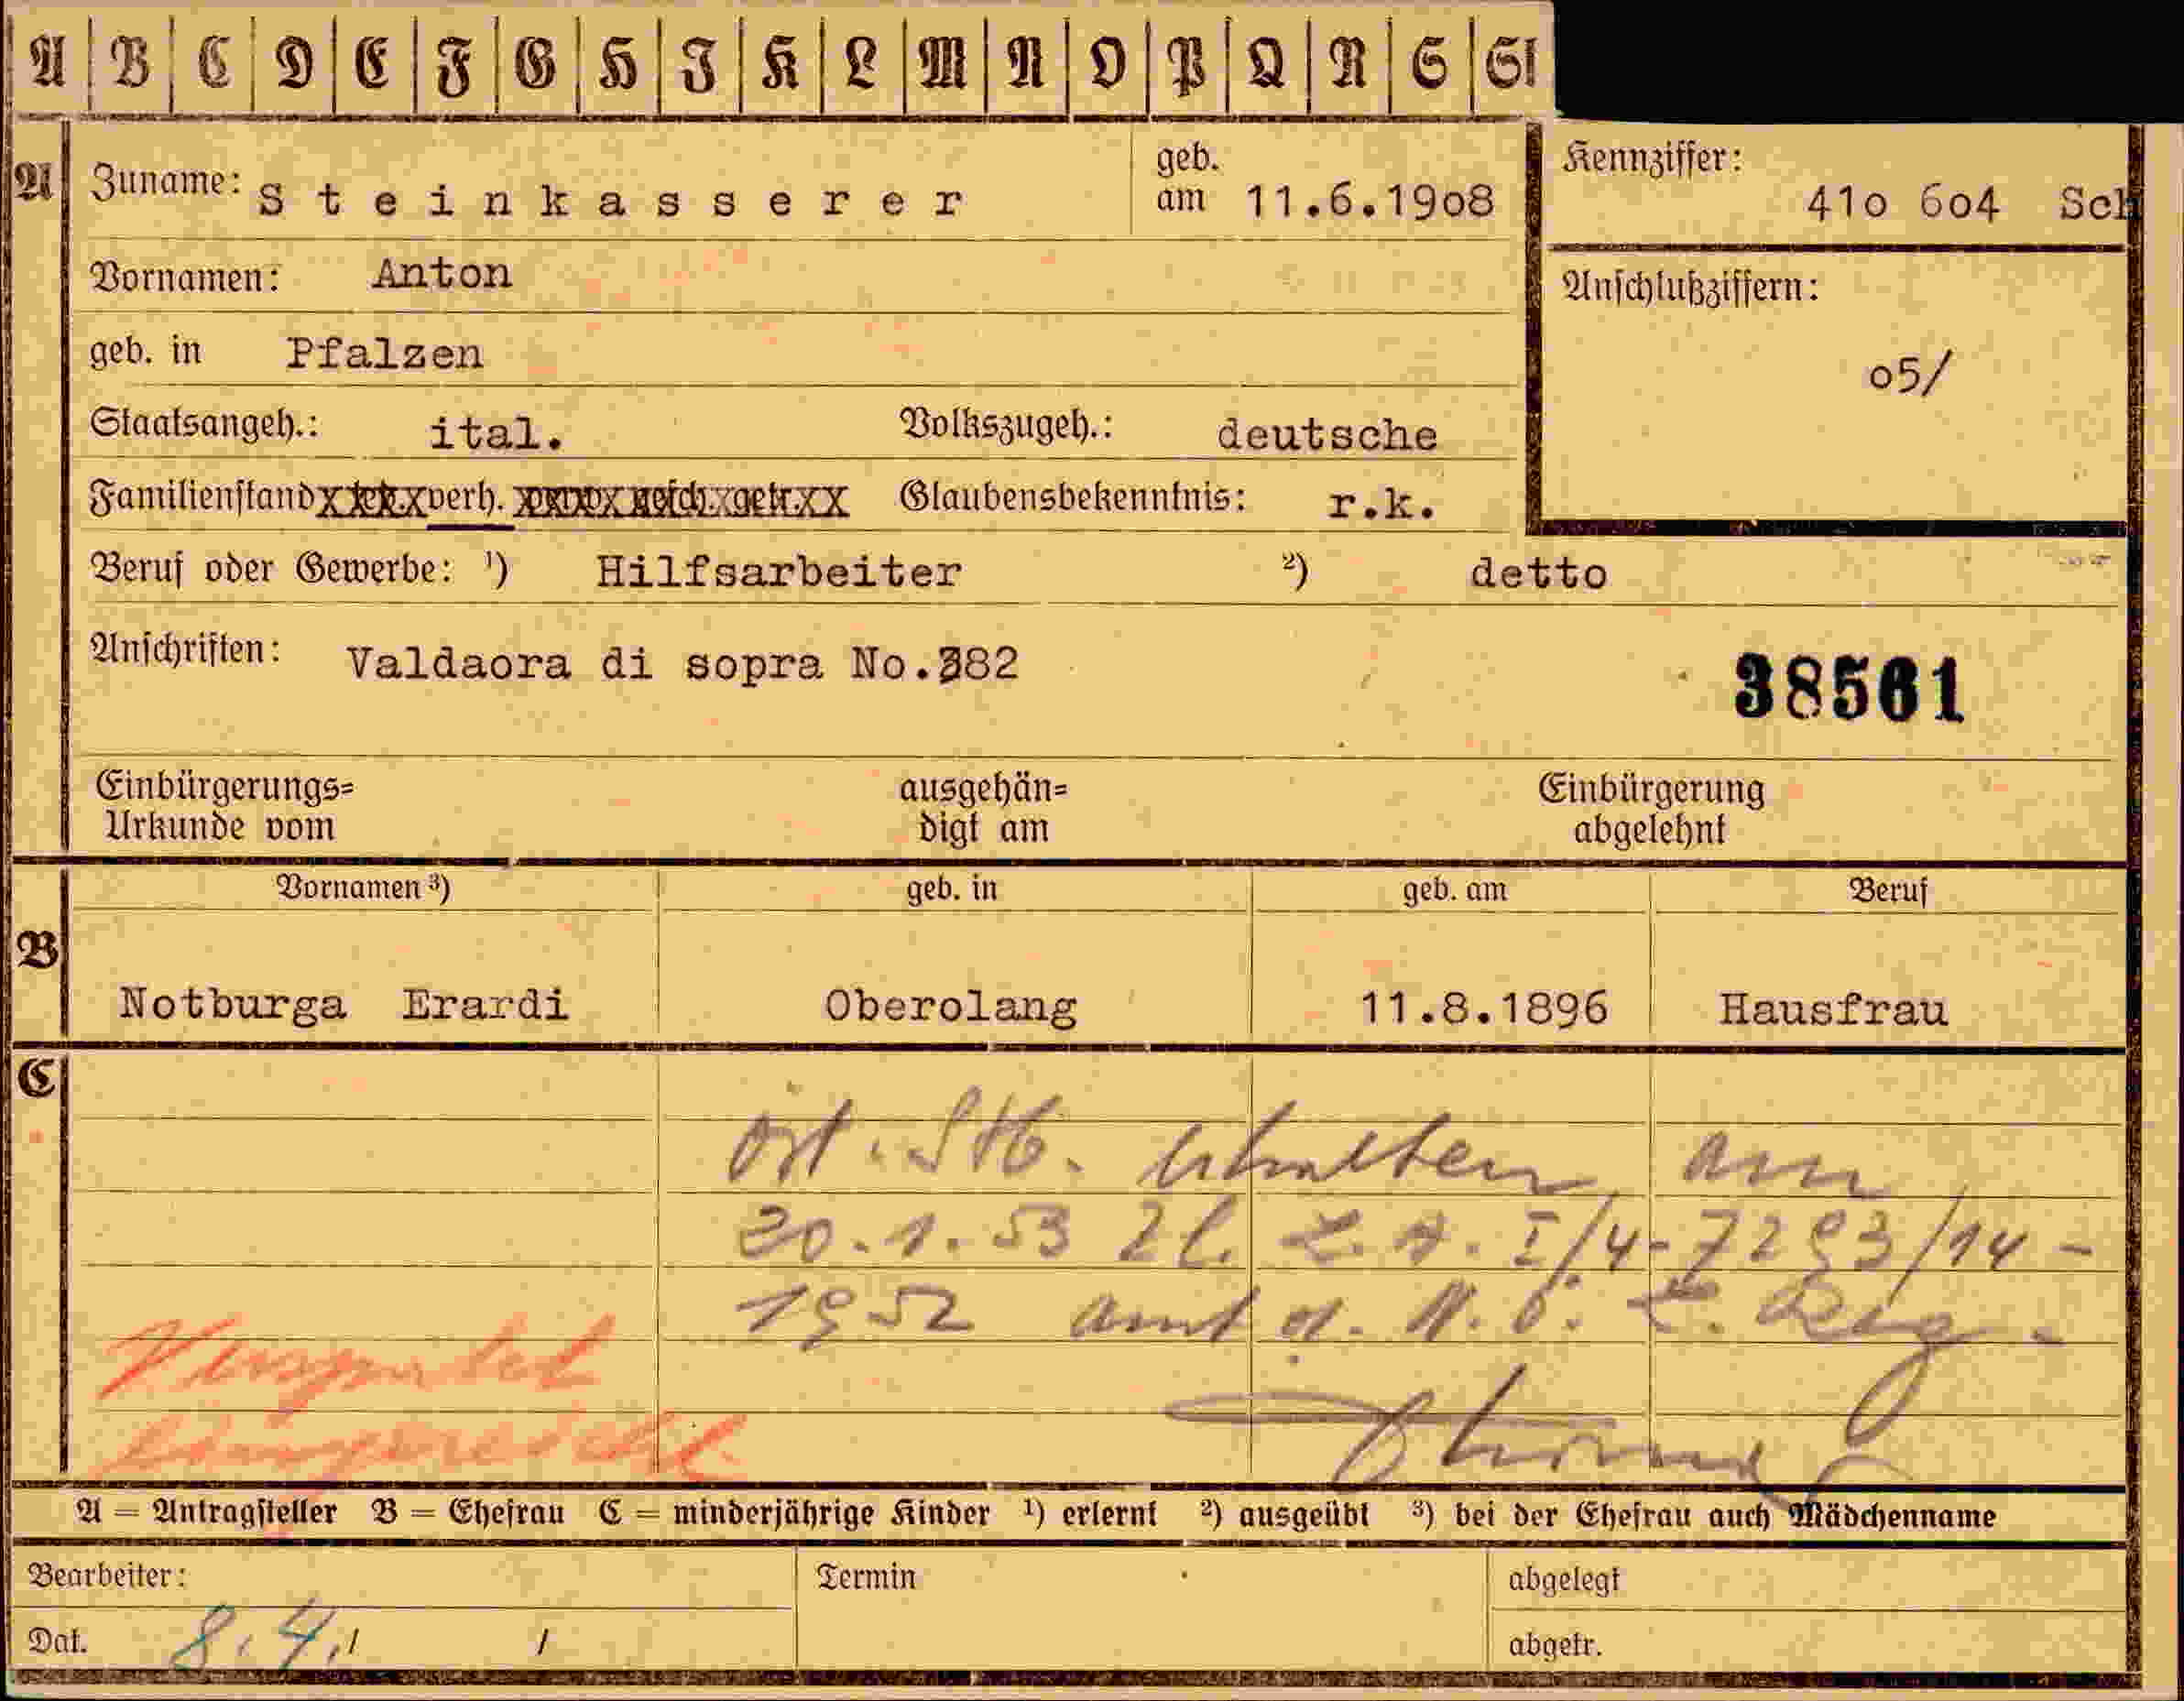 A B C D E F G H I K L M N O P Q R S St
A
Zuname: Steinkasserer geb. am 11.6.1908
Kennziffer: 41o 6o4 Sch
Vornamen: Anton
Anschlußziffern: o5/
geb. in Pfalzen
Staatsangeh.: ital. Volkszugeh.: deutsche
Familienstand verh. gesch. getr. Glaubensbekenntnis: r.k.
Beruf oder Gewerbe: ¹) Hilfsarbeiter ²) detto
Anschriften: Valdaora di sopra No.382
38561
Einbürgerungs= ausgehän= Einbürgerung
Urkunde vom digt am abgelehnt
Vornamen ³) geb. in geb. am Beruf
B
Notburga Erardi Oberolang 11.8.1896 Hausfrau
C
öst. Stb. erhalten am
20.1.53 Zl. L.A. I/4-7293/14-
1952 Amt d. N.ö. L. Reg.
A = Antragsteller B = Ehefrau C = minderjährige Kinder ¹) erlernt ²) ausgeübt ³) bei der Ehefrau auch Mädchenname
Bearbeiter: Termin abgelegt
Dat. 8.4. / / abgetr.